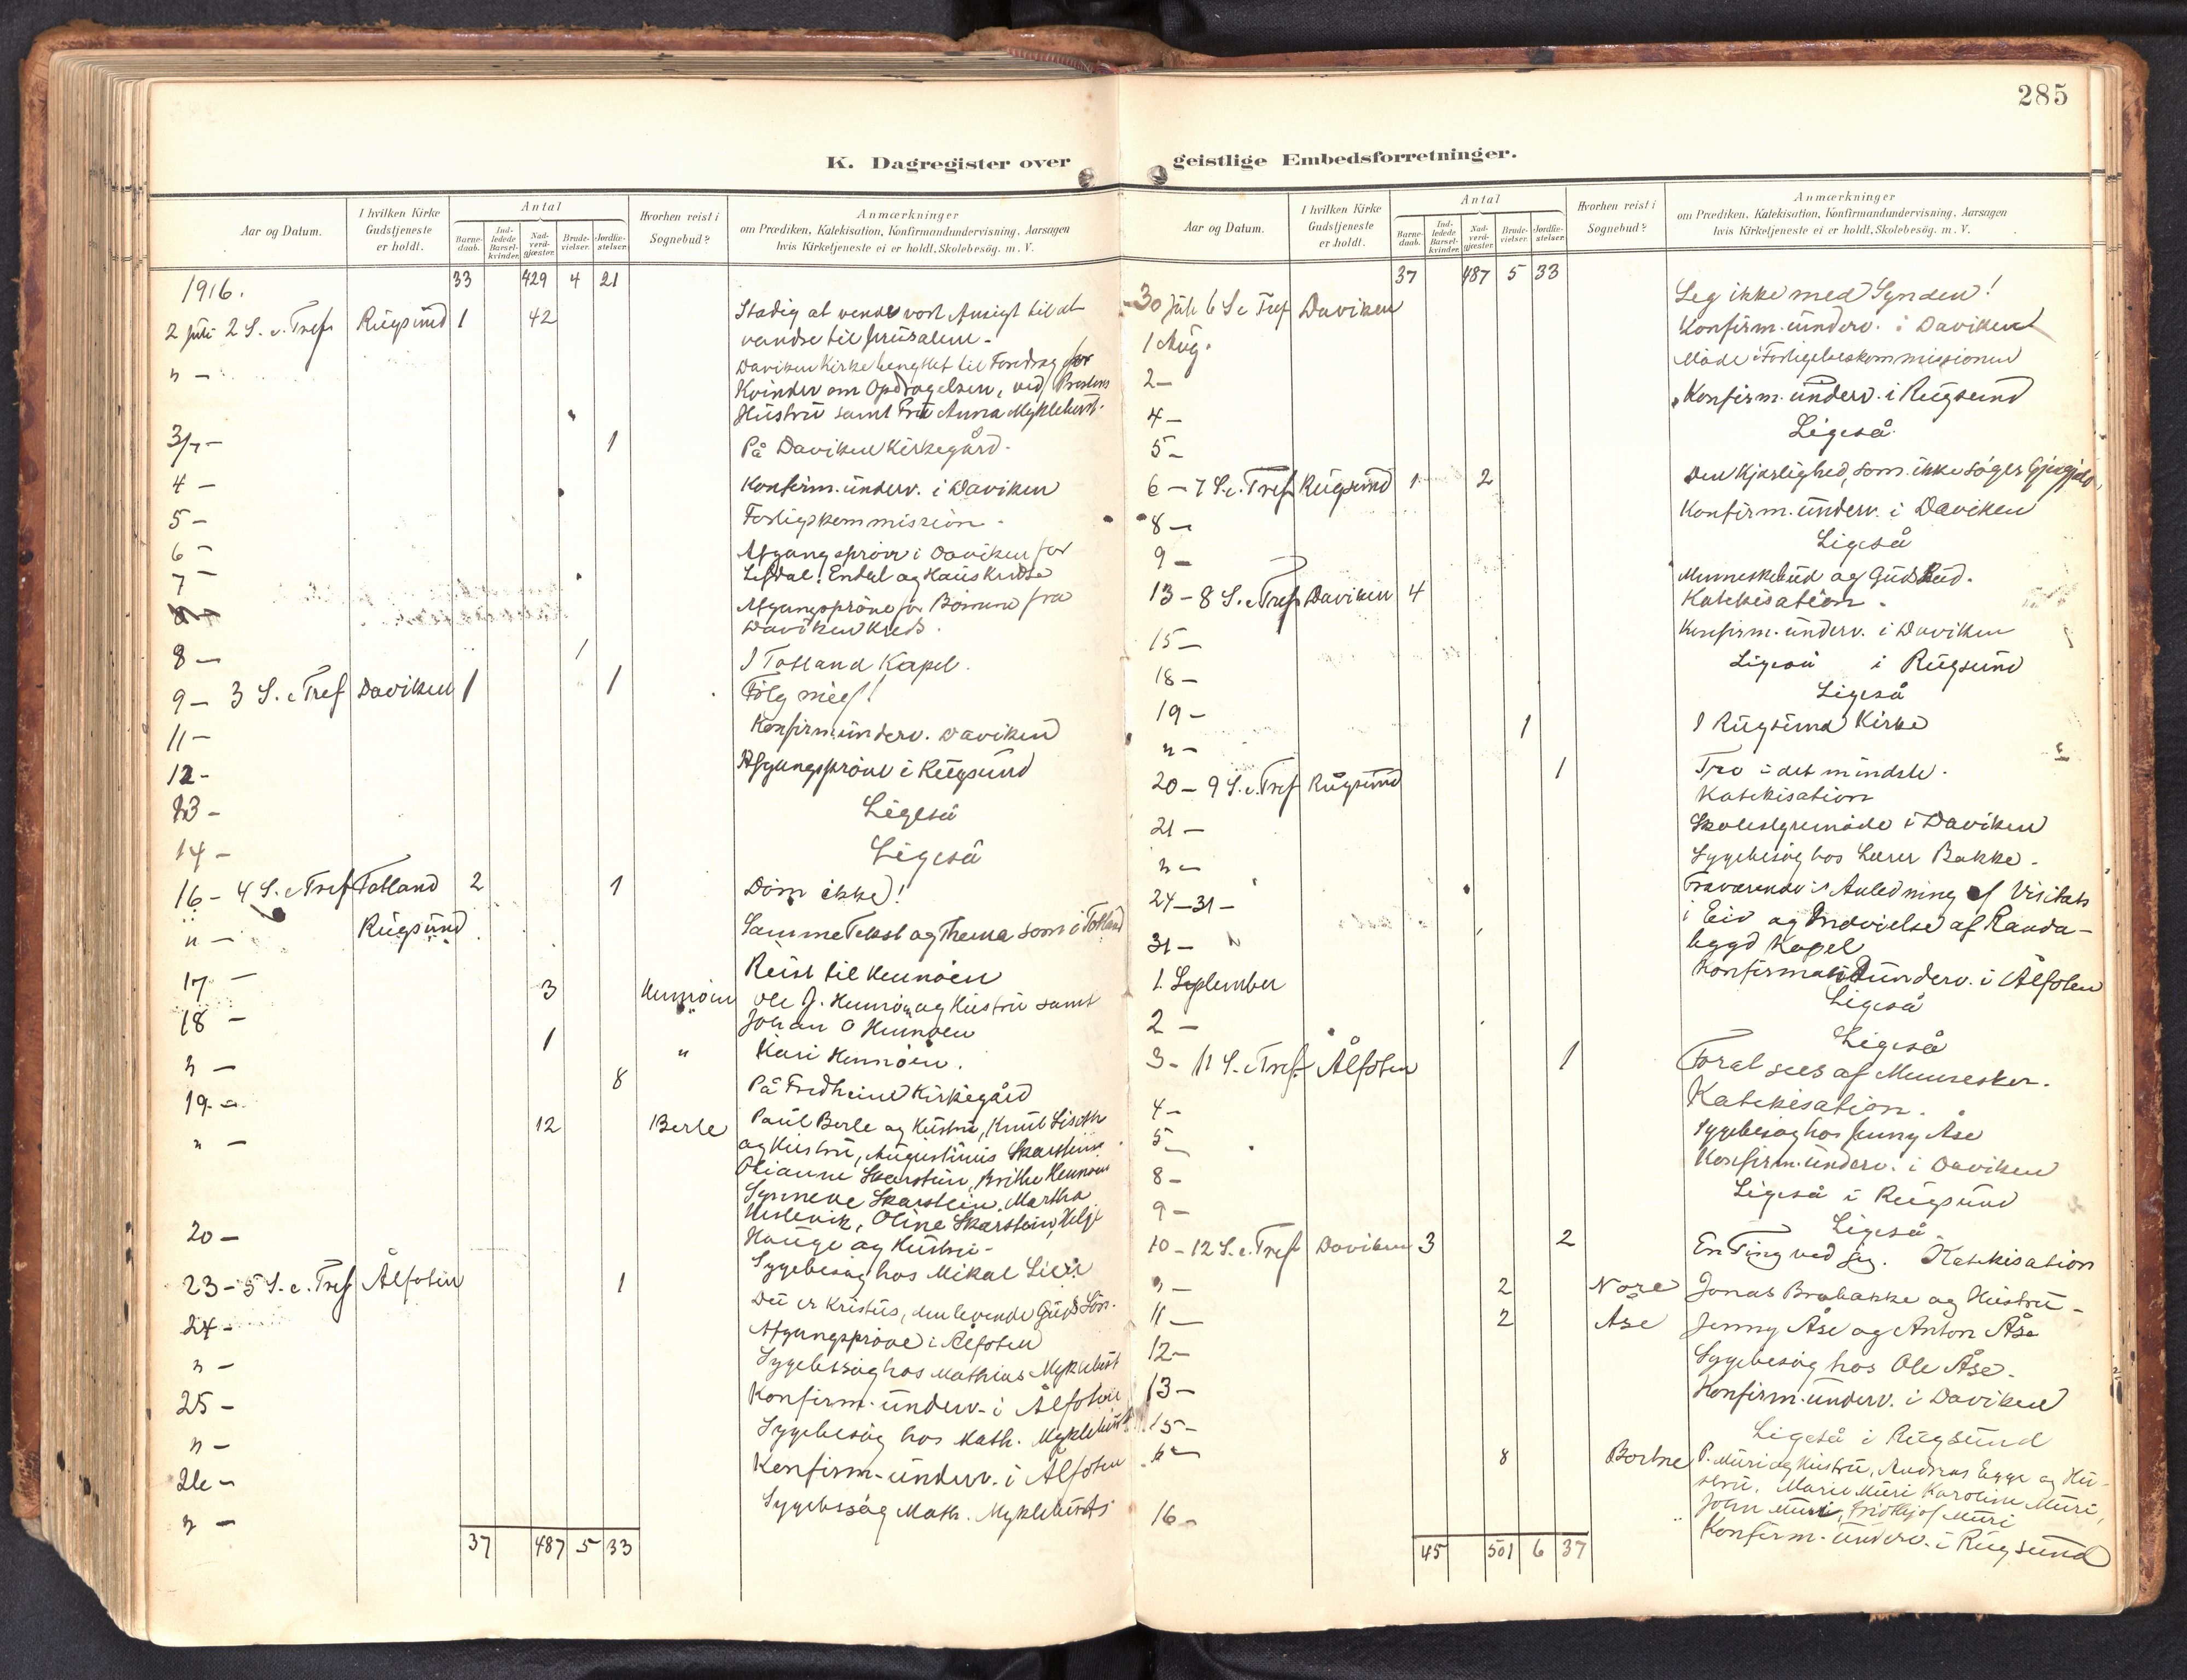 285
K. Dagregister over geistlige Embedsforretninger.
Aar og Datum.
I hvilken Kirke Gudstjeneste er holdt.
Antal
Barnedaab.
Indledede Barselkvinder.
Nadverdgjæster.
Brudevielser.
Jordfæstelser.
Hvorhen reist i Sognebud?
Anmærkninger
om Prædiken, Katekisation, Konfirmandundervisning, Aarsagen
hvis Kirketjeneste ei er holdt, Skolebesög. m. V.
1916. 33 429 4 21
2 Juli 2 S. e. Tref. Rugsund 1 42 Stadig at vende vort Ansigt til at
vandre til Jerusalem.
" — Daviken Kirke benyttet til Foredrag for
Kvinder om Opdragelsen, ved Prestens
Hustru samt Fru Anna Myklebust.
3/7 — 1 På Daviken Kirkegård.
4 — Konfirm. underv. i Daviken
5 — Forligskommission.
6 — Afgangspröve i Daviken for
7 — Lefdal, Endal og Haus Kredse
Afgangspröve for Börnene fra
Daviken Kreds.
8 — 1 I Totland Kapel.
9 — 3 S. e Tref Daviken 1 1 Fölg mig!
11 — Konfirm. underv. Daviken
12 - Afgangspröve i Rugsund
13 - Ligeså
14 - Ligeså
16 - 4 S. e Tref Totland 2 1 Döm ikke!
" — Rugsund Samme Tekst og Thema som i Totland
17 — Reist til Hennöen
18 — 3 Hennöen Ole J. Hennöen og Hustru samt
Johan O Hennöen
" — 1 " Kari Hennöen.
19 - 8 På Fredheim Kirkegård
" — 12 Berle Paul Berle og Hustru, Knut Liseth
og Hustru, Augustinus Skarstein
Olianne Skarstein, Brithe Hennöen
Synneve Skarstein, Martha
Oline Skarstein, Helje
20 — Hauge og Hustru -
Sygebesög hos Mikal
23 - 5 S. e. Tref Ålfoten 1 Du er Kristus, den levende Guds Sön.
24 - Afgangspröve i Ålfoten
" — Sygebesög hos Mathias Myklebust
25 - Konfirm. underv. i Ålfoten
" — Sygebesög hos Math. Myklebust
26 — Konfirm. underv. i Ålfoten
" — Sygebesög Math. Myklebusts
37 487 5 33
Aar og Datum.
I hvilken Kirke Gudstjeneste er holdt.
Antal
Barnedaab.
Indledede Barselkvinder.
Nadverdgjæster.
Brudevielser.
Jordfæstelser.
Hvorhen reist i Sognebud?
Anmærkninger
om Prædiken, Katekisation, Konfirmandundervisning, Aarsagen
hvis Kirketjeneste ei er holdt, Skolebesög. m. V.
37 487 5 33
30 Juli 6 S e Tref Daviken Leg ikke med Synden!
1 Aug. Konfirm. underv. i Daviken
2 — Möde i Forligelseskommissionen
4 — Konfirm. underv. i Rugsund
5 - Ligeså
6 — 7 S. e. Tref Rugsund 1 2 Den Kjærlighed, som ikke söger Gjengjæld,
8 — Konfirm. underv. i Daviken
9 — Ligeså
13 - 8 S. e Tref Daviken 4 Menneskebud og Guds Bud.
Katekisation.
15 — Konfirm. underv. i Daviken
18 — Ligeså i Rugsund
19 - Ligeså
" — 1 I Rugsund Kirke
20 — 9 S. e. Tref Rugsund 1 Tro i det mindste.
Katekisation
21 — Skolestyremöde i Daviken
" — Sygebesög hos Lærer Bakke.
24—31 — Fraværende i Anledning af Visitats
i Eid og Indvielse af Randa-
bygd Kapel
31 — Konfirmandunderv. i Ålfoten
1. September Ligeså
2 — Ligeså
3 - 11 S. e Tref. Ålfoten 1 For at sees af Mennesker.
Katekisation.
4 - Sygebesög hos Jenny Åse
5 — Konfirm. underv. i Daviken
8 - Ligeså i Rugsund
9 - Ligeså
10 - 12 S. e. Tref Daviken 3 2 En Ting ved jeg. Katekisation
" — 2 Nore Jonas Brobakke og Hustru -
11 — 2 Åse Jenny Åse og Anton Åse
12 - Sygebesög hos Ole Åse.
13 - Konfirm. underv. i Daviken
15 - Ligeså i Rugsund
" — 8 Bortne P. Muri og Hustru, Andreas Egge og Hu-
stru, Marie Muri Karoline Muri,
John Muri, Fridtjof Muri
16 - Konfirm. underv. i Rugsund
45 501 6 37